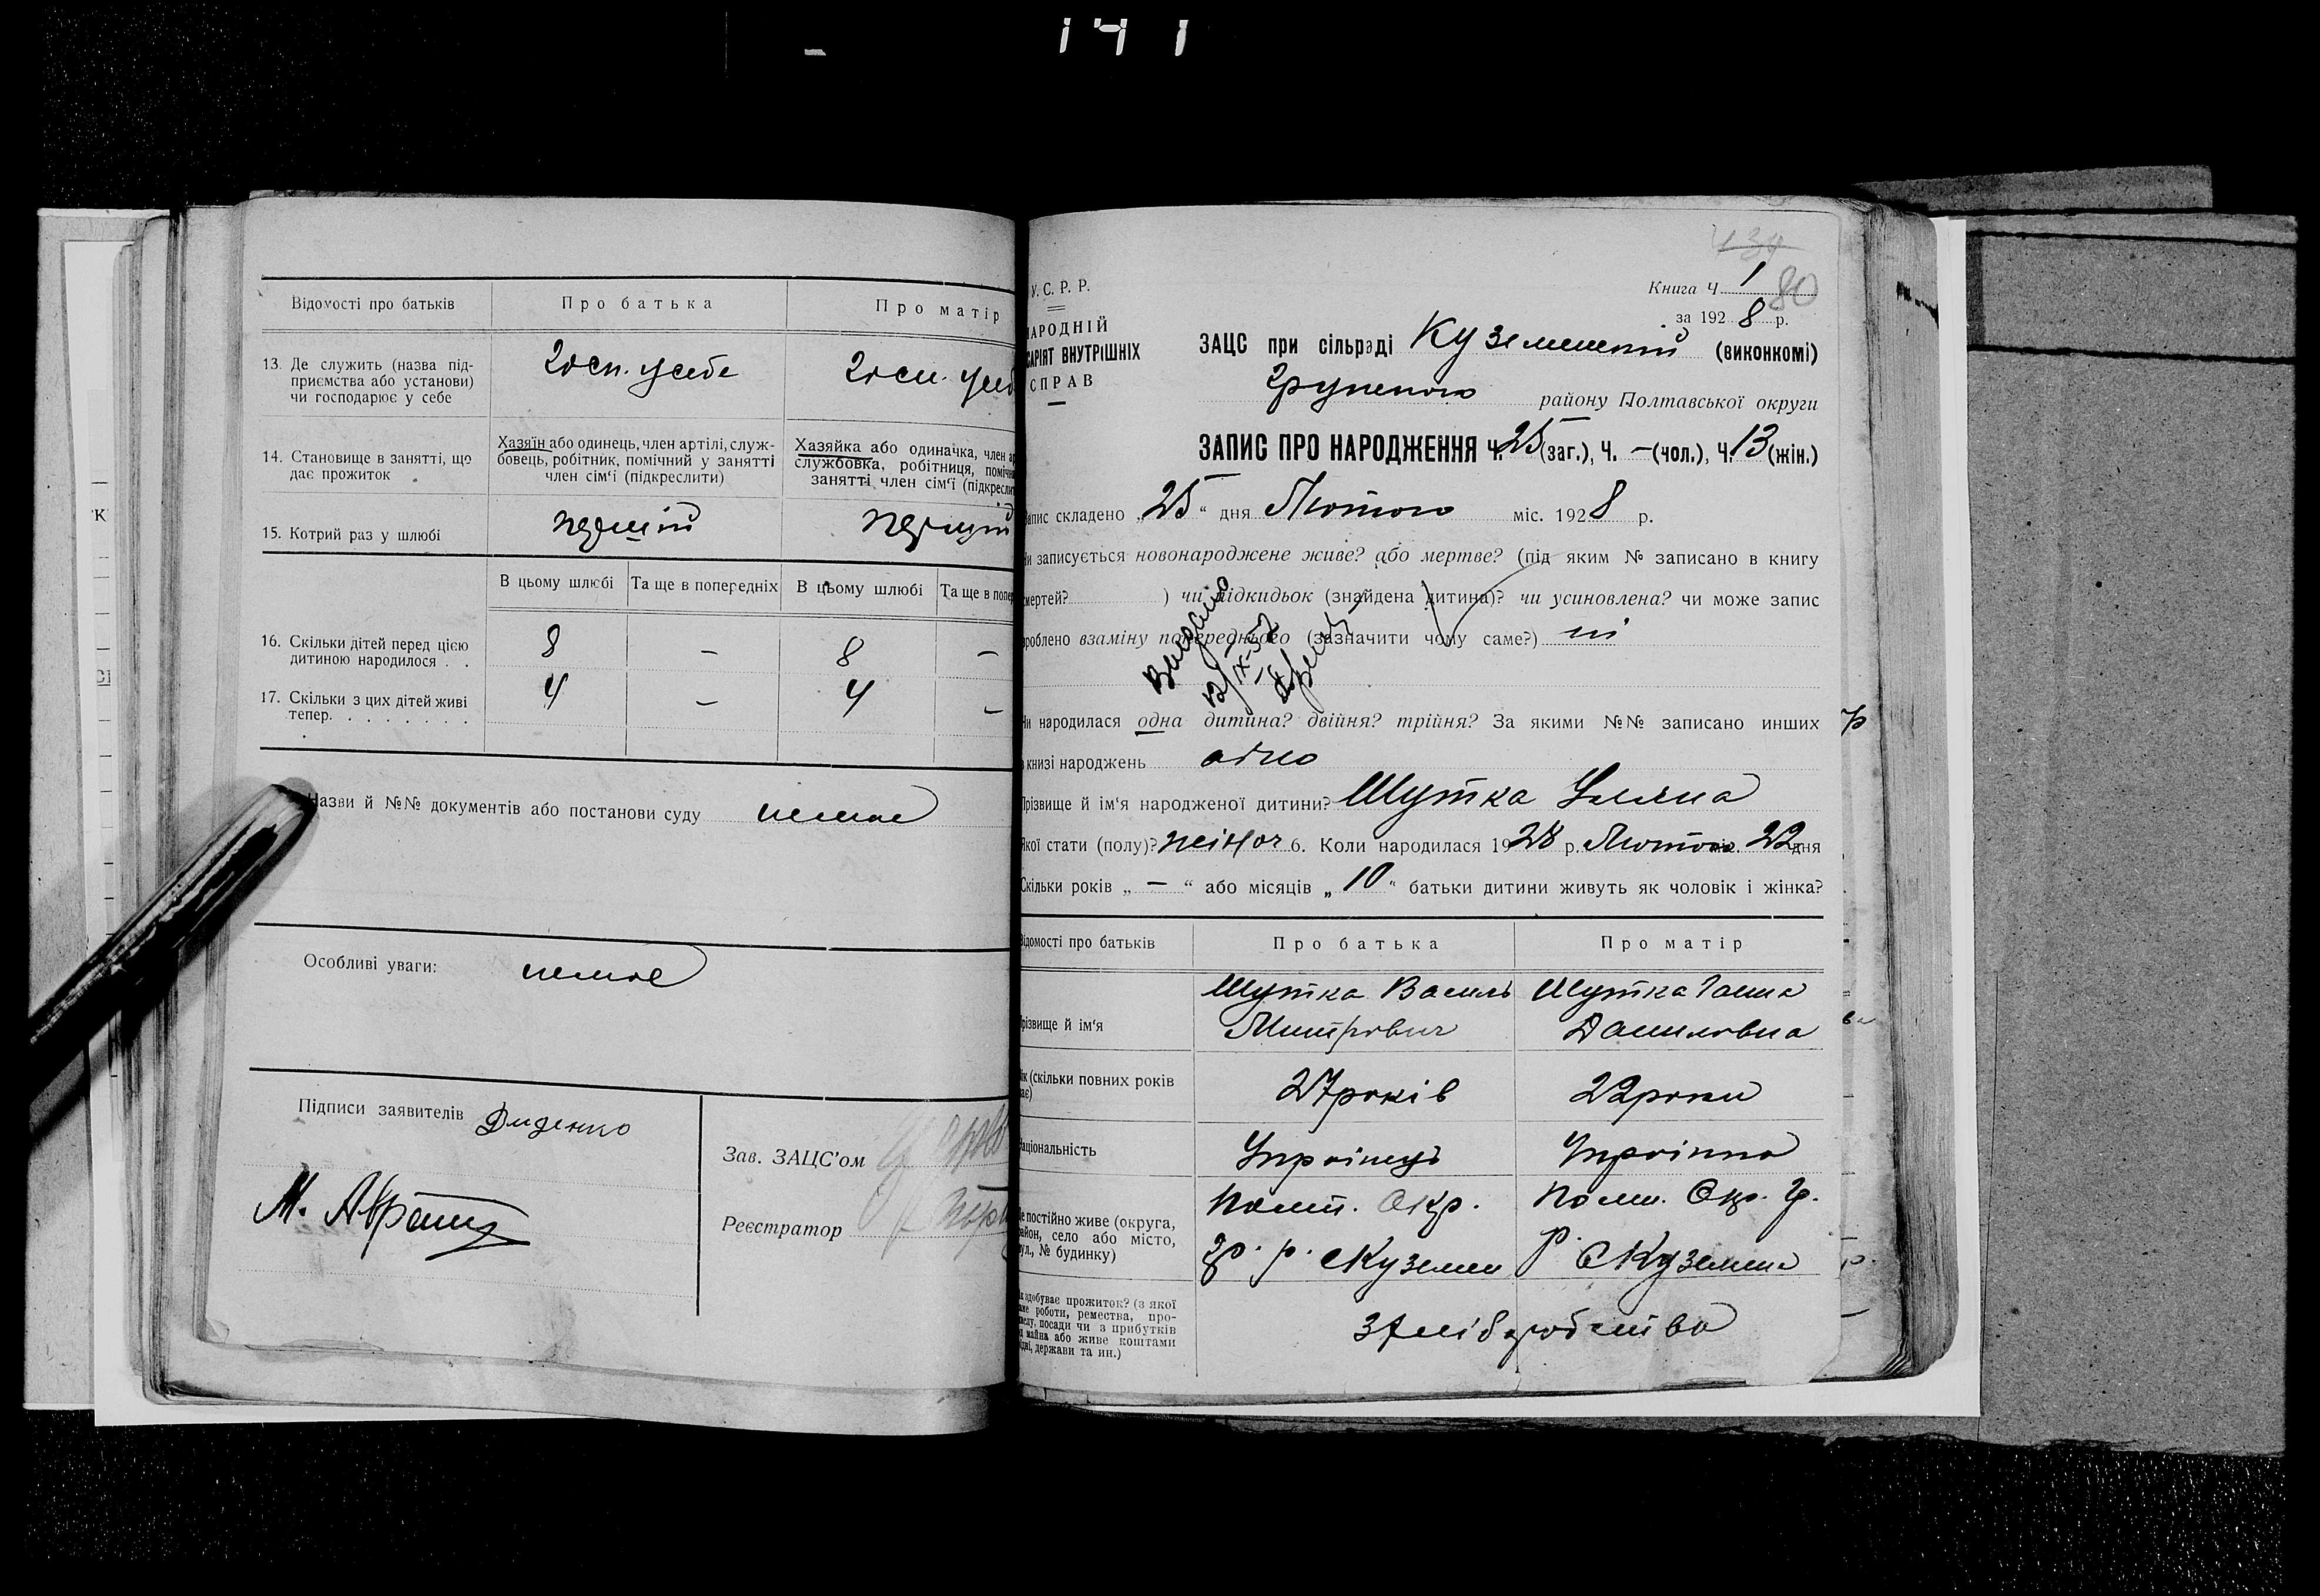 141
Відомості про батьків
Про батька
Про матір
13. Де служить (назва під-
приємства або установи)
чи господарює у себе
Госп. у себе
Госп. у себ
14. Становище в занятті, що
дає прожиток
Хазяїн або одинець, член артілі, служ-
бовець, робітник, помічний у занятті
член сім'ї (підкреслити)
Хазяйка або одиначка, член ар
службовка, робітниця, помічн
занятті член сім'ї (підкресли
15. Котрий раз у шлюбі
перший
перший
В цьому шлюбі
Та ще в попередніх
В цьому шлюбі
Та ще в попер
16. Скільки дітей перед цією
дитиною народилося . .
8 – 8 –
17. Скільки з цих дітей живі
тепер. . . . . . . .
4 – 4 –
Назви й №№ документів або постанови суду немає
Особливі уваги: немає
Підписи заявителів Диденко
Зав. ЗАЦС'ом
Реєстратор
134
Книга Ч 1
80
за 1928 р.
У. С. Р. Р.
НАРОДНІЙ
САРІЯТ ВНУТРІШНІХ
СПРАВ
ЗАЦС при сільраді Куземенській (виконкомі)
Грунського району Полтавської округи
ЗАПИС ПРО НАРОДЖЕННЯ Ч. 25 (заг.), Ч. – (чол.), Ч. 13 (жін.)
Запис складено „25“ дня Лютого міс. 1928 р.
Чи записується новонароджене живе? або мертве? (під яким № записано в книгу
смертей? ) чи підкидьок (знайдена дитина)? чи усиновлена? чи може запис
зроблено взаміну попереднього (зазначити чому саме?) ні
Видано
12/IX-52
Чи народилася одна дитина? двійня? трійня? За якими №№ записано инших
в книзі народжень одно
Прізвище й ім'я народженої дитини? Шутка Уляна
Якої стати (полу)? жіноч 6. Коли народилася 1928 р. Лютого міс. 22 дня
Скільки років „ – “ або місяців „ 10 “ батьки дитини живуть як чоловік і жінка?
Відомості про батьків
Про батька
Про матір
Прізвище й ім'я
Шутка Василь
Митрович
Шутка Ганна
Даниловна
Вік (скільки повних років
має)
27 років
22 роки
Національність
Українець
Українка
Де постійно живе (округа,
район, село або місто,
вул., № будинку)
Полт. Окр.
Гр. р. с Куземен
Полт. Окр. Гр.
р. с Куземин
Як здобуває прожиток? (з якої
саме роботи, ремества, про-
мислу, посади чи з прибутків
від майна або живе коштами
рідні, держави та ин.)
З хліборобства